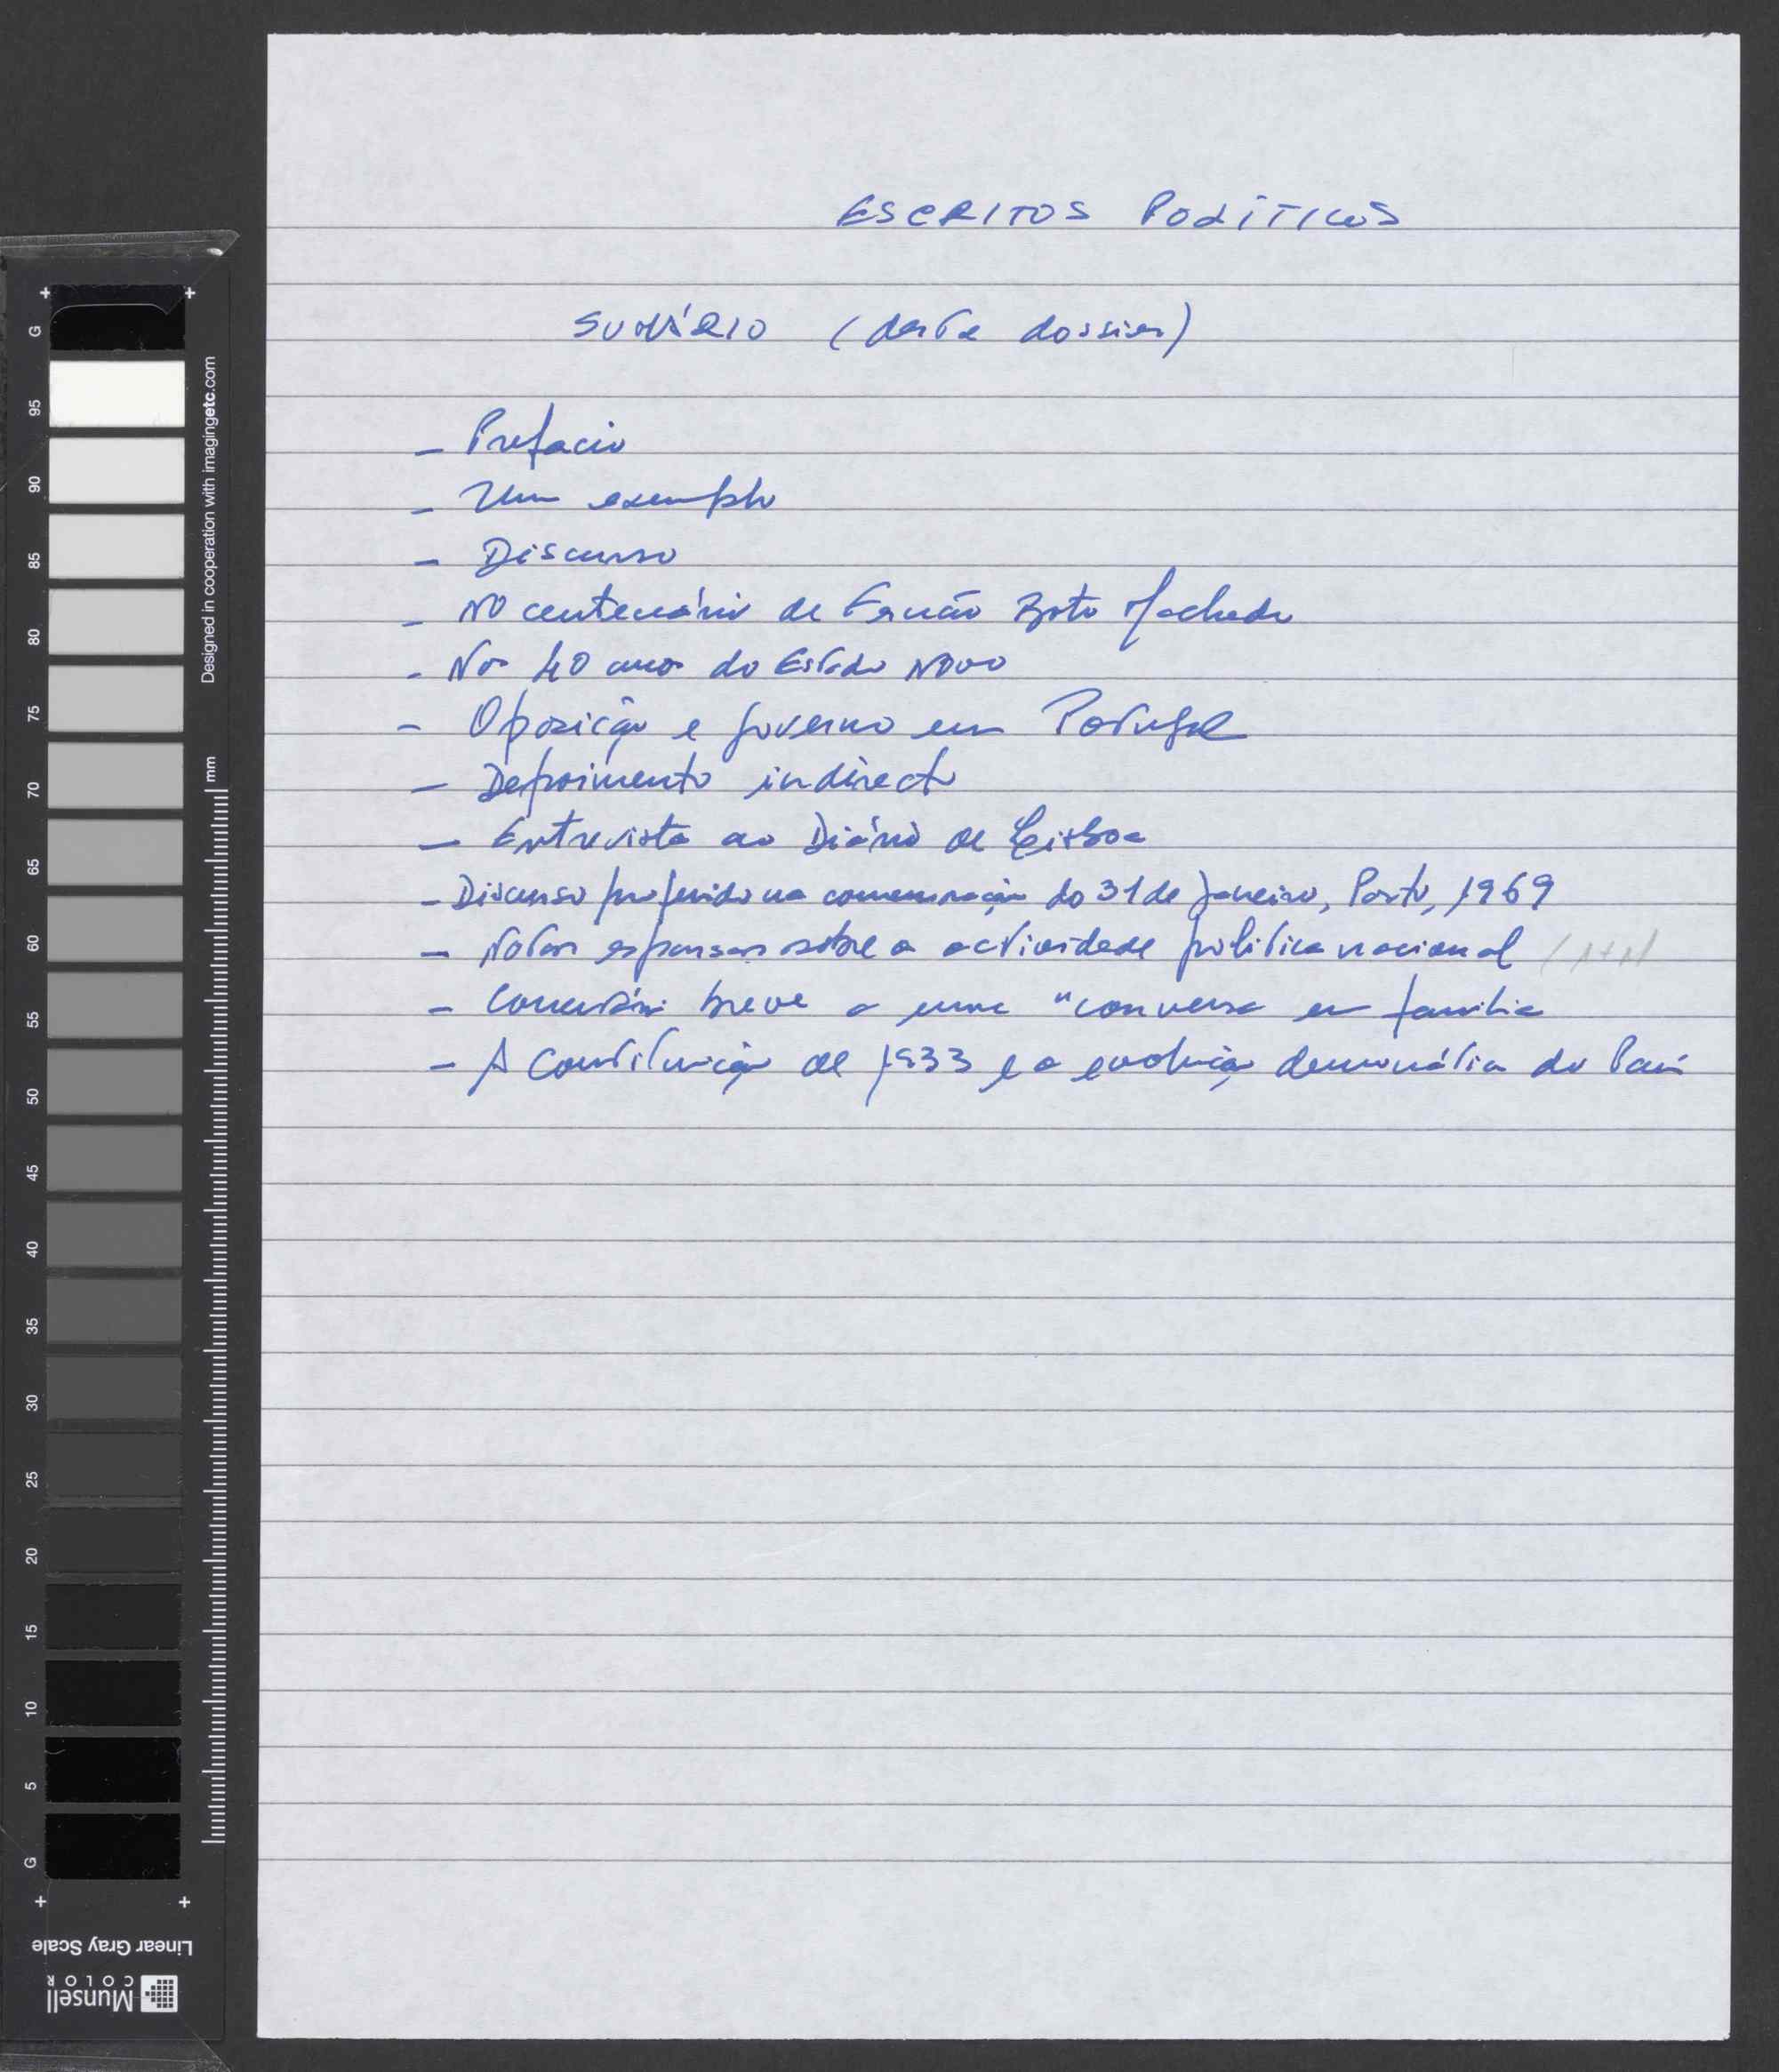 ESCRITOS POLÍTICOS
SUMÁRIO (deste dossier)
- Prefacio
- Um exemplo
- Discurso
- No centenário de Fernão Boto Machado
- Nos 40 anos do Estado Novo
- Oposição e governo em Portugal
- Depoimento indirecto
- Entrevista ao Diário de Lisboa
- Discurso proferido na comemoração do 31 de Janeiro, Porto, 1969
- Notas esparsas sobre a actividade política nacional
- Comentário breve a uma "conversa em família
- A Constituição de 1933 e a evolução democrática do País
Designed in cooperation with imagingetc.com
mm
G
95
90
85
80
75
70
65
60
55
50
45
40
35
30
25
20
15
10
5
G
Linear Gray Scale
Munsell
COLOR